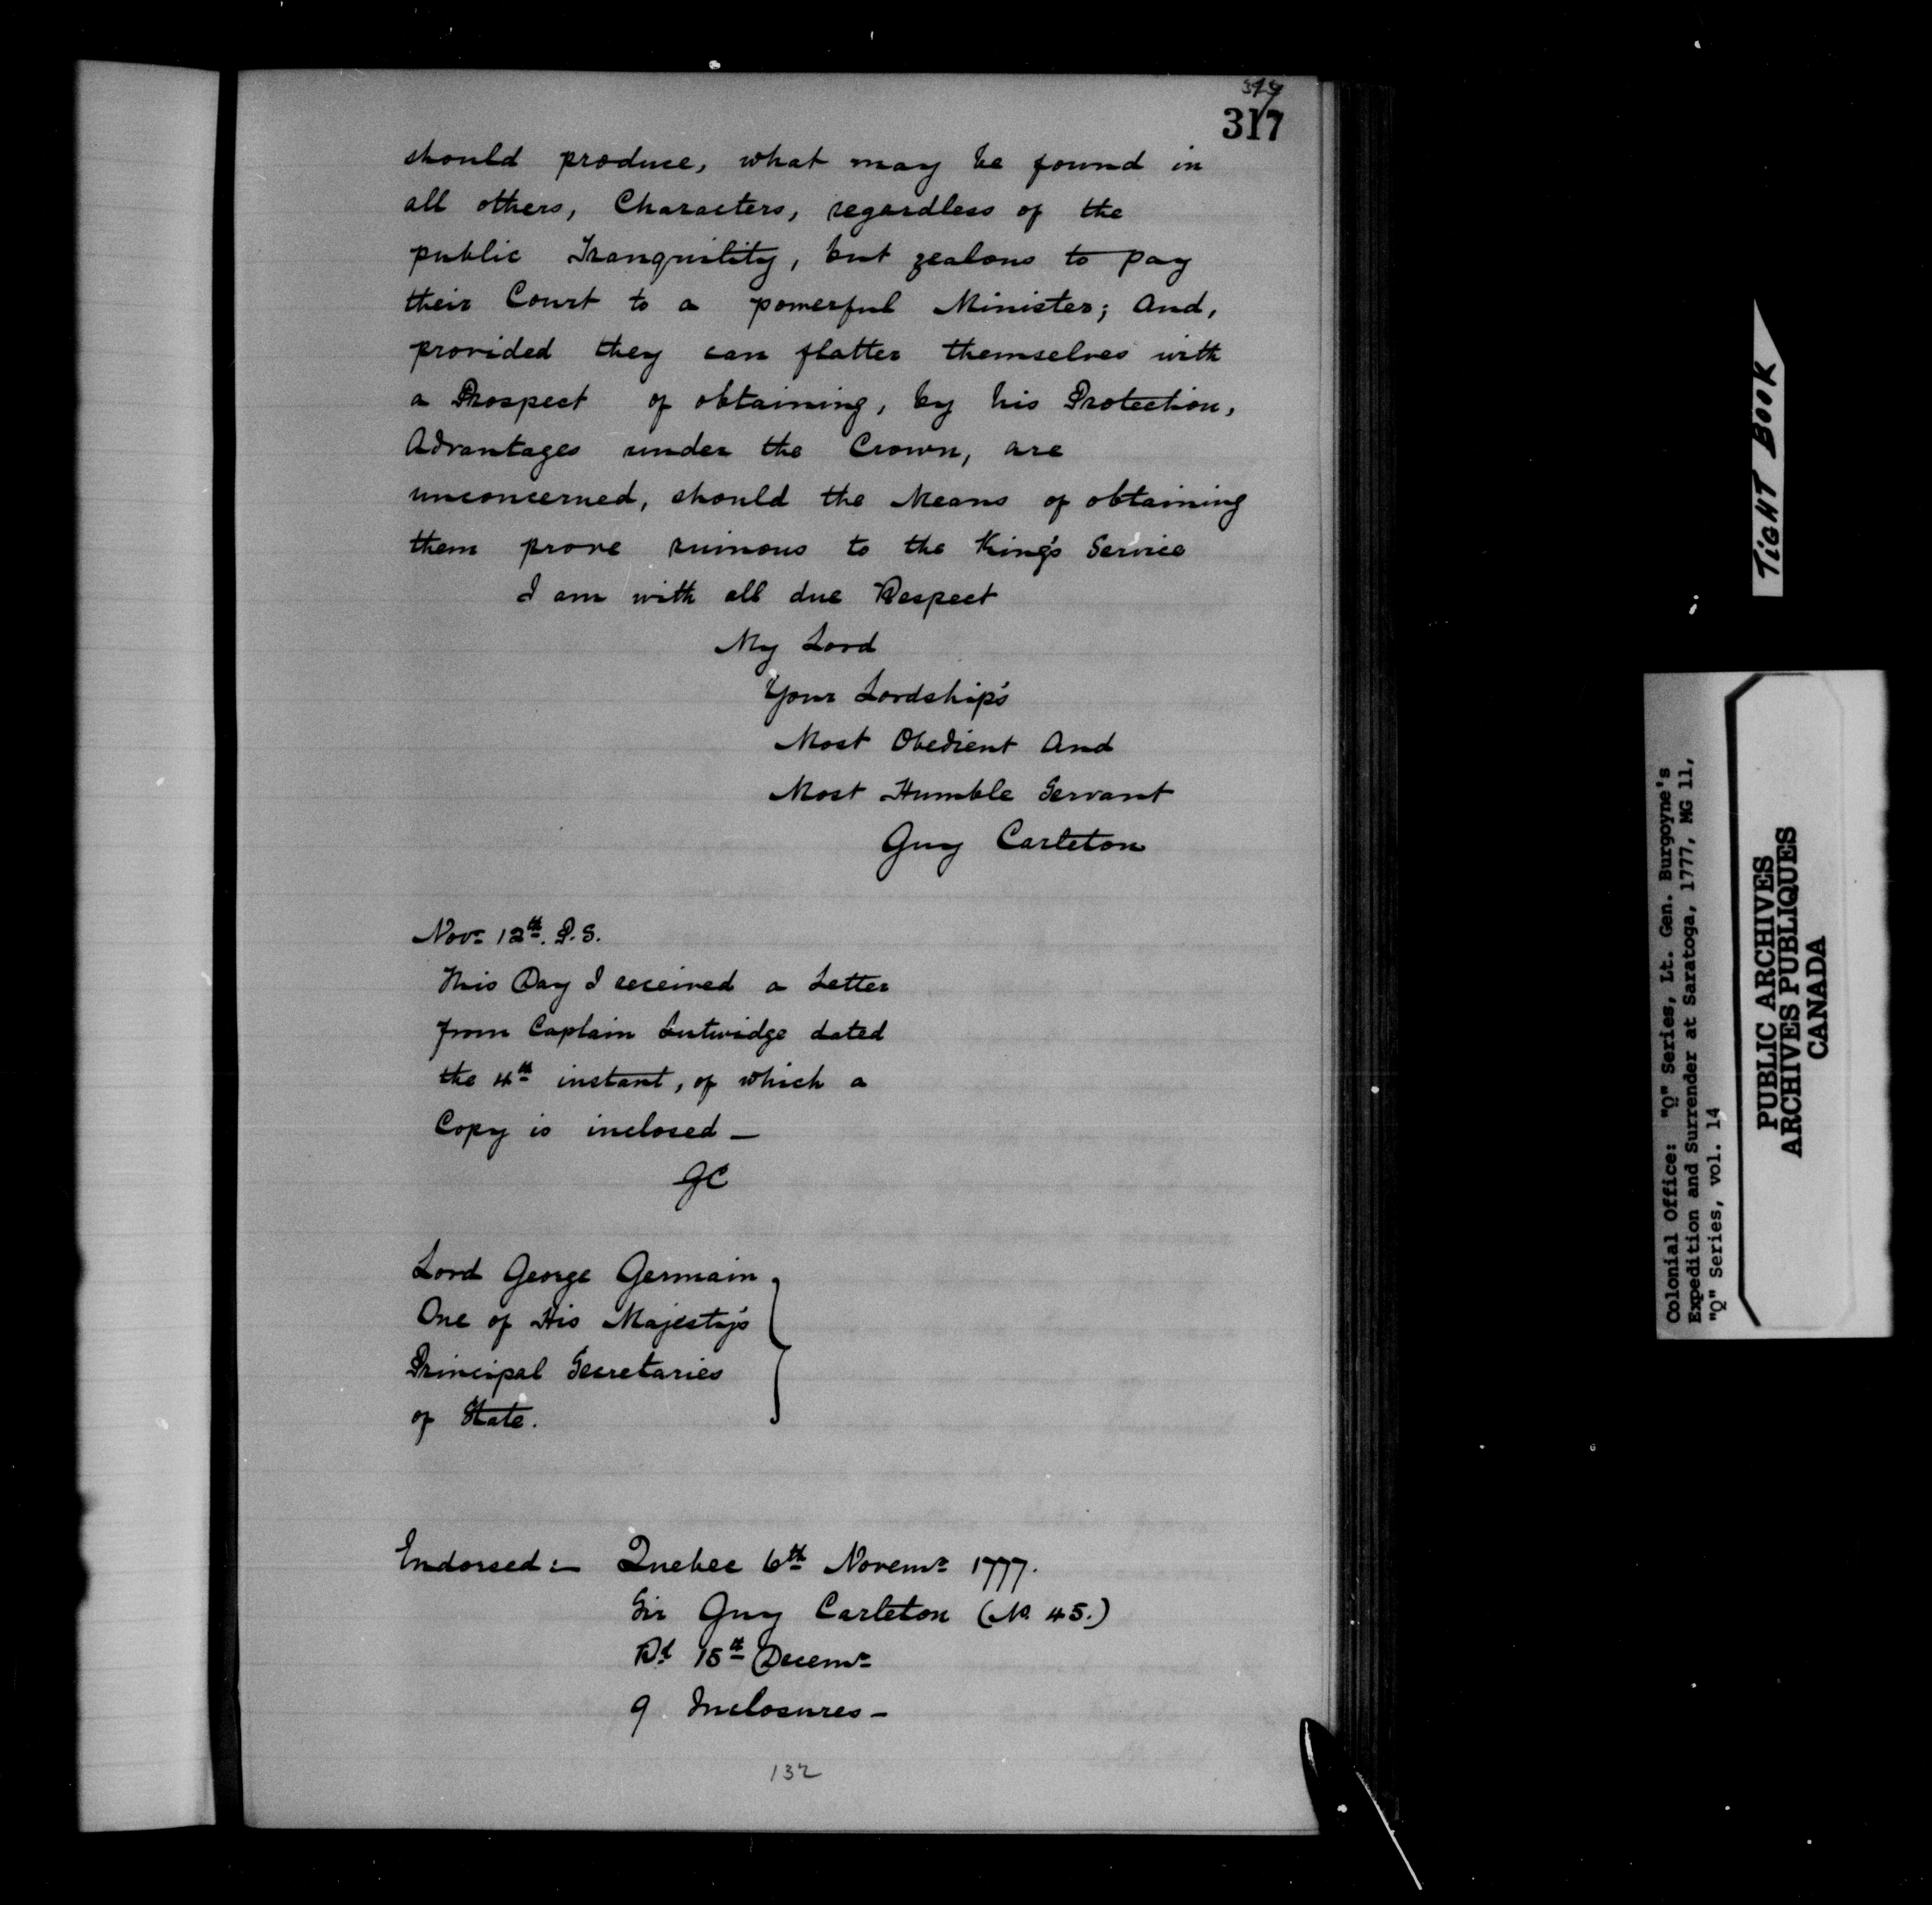 317
should produce, what may be found in
all others, Characters, regardless of the
public Tranquility, but zealous to pay
their Court to a powerful Minister; And,
provided they can flatter themselves with
a Prospect of obtaining, by his Protection,
Advantages under the Crown, are
unconcerned, should the Means of obtaining
them prove ruinous to the King's Service
I am with all due Respect
My Lord
Your Lordship's
Most Obedient And
Most Humble Servant
Guy Carleton
Novr 12th. P.S.
This Day I received a Letter
from Captain Lutwidge dated
the 4th instant, of which a
Copy is inclosed —
GC
Lord George Germain
One of His Majesty's
Principal Secretaries
of State.
Endorsed :— Quebec 6th Novemr 1777.
Sir Guy Carleton (No. 45.)
Rd 15th Decemr
9 Inclosures —
132
TIGHT BOOK
Colonial Office: "Q" Series, Lt. Gen. Burgoyne's
Expedition and Surrender at Saratoga, 1777, MG 11,
"Q" Series, vol. 14
PUBLIC ARCHIVES
ARCHIVES PUBLIQUES
CANADA